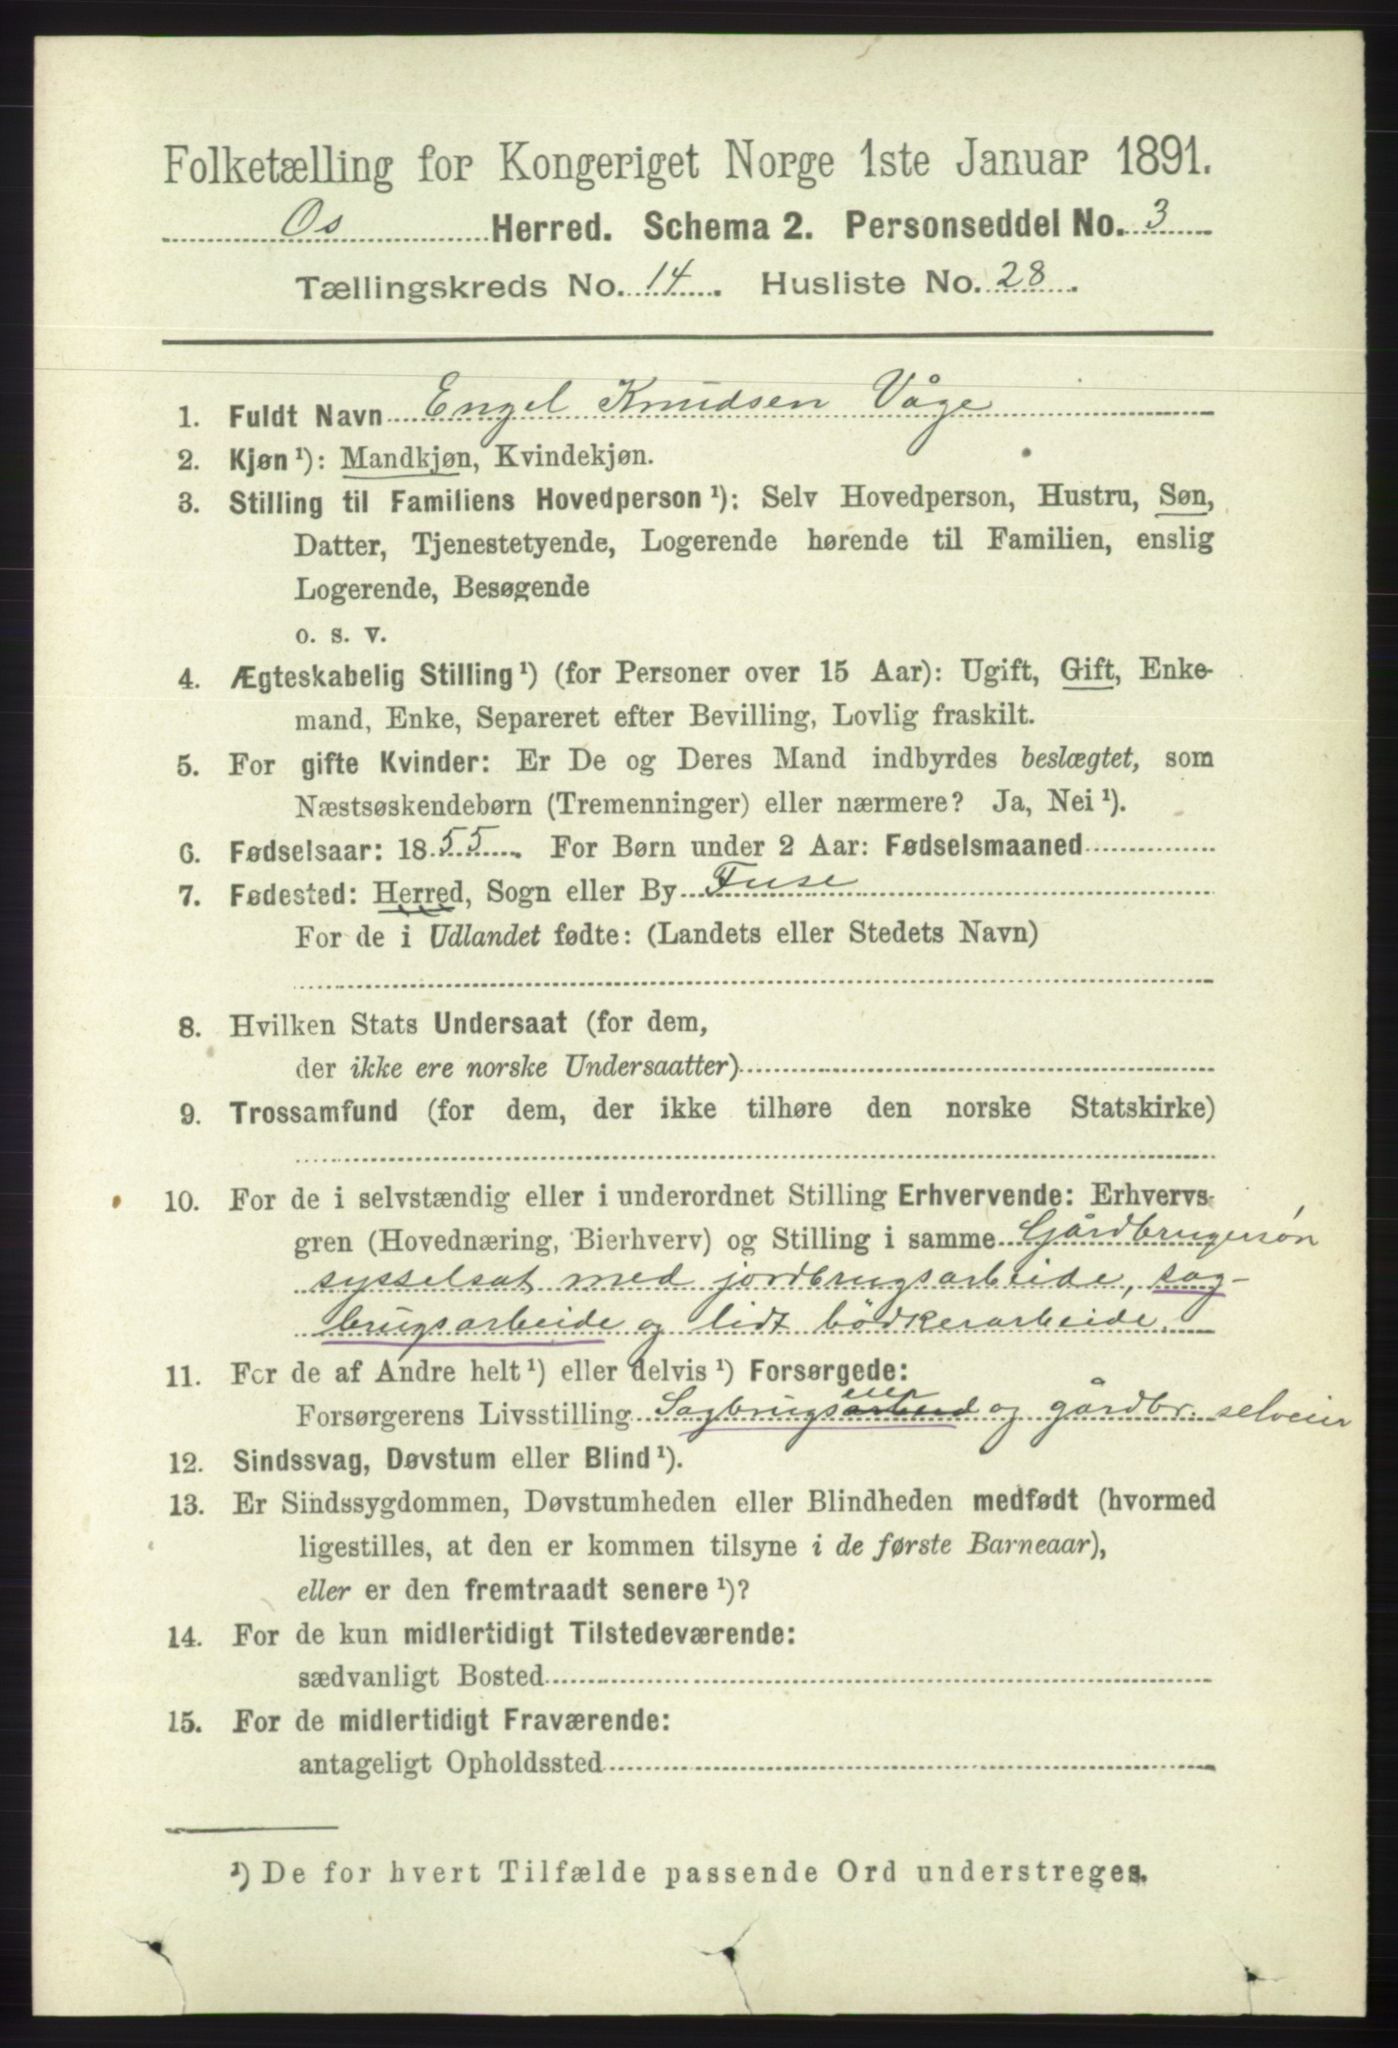 Folketælling for Kongeriget Norge 1ste Januar 1891.
Os Herred. Schema 2. Personseddel No. 3
Tællingskreds No. 14. Husliste No. 28.
1. Fuldt Navn Engel Knudsen Våge
2. Kjøn¹): Mandkjøn, Kvindekjøn.
3. Stilling til Familiens Hovedperson¹): Selv Hovedperson, Hustru, Søn,
Datter, Tjenestetyende, Logerende hørende til Familien, enslig
Logerende, Besøgende
o. s. v.
4. Ægteskabelig Stilling¹) (for Personer over 15 Aar): Ugift, Gift, Enke-
mand, Enke, Separeret efter Bevilling, Lovlig fraskilt.
5. For gifte Kvinder: Er De og Deres Mand indbyrdes beslægtet, som
Næstsøskendebørn (Tremenninger) eller nærmere? Ja, Nei¹).
6. Fødselsaar: 1855. For Børn under 2 Aar: Fødselsmaaned
7. Fødested: Herred, Sogn eller By Fuse
For de i Udlandet fødte: (Landets eller Stedets Navn)
8. Hvilken Stats Undersaat (for dem,
der ikke ere norske Undersaatter)
9. Trossamfund (for dem, der ikke tilhøre den norske Statskirke)
10. For de i selvstændig eller i underordnet Stilling Erhvervende: Erhvervs-
gren (Hovednæring, Bierhverv) og Stilling i samme Gårdbrugersøn
sysselsat med jordbrugsarbeide, sag-
brugsarbeide og lidt bödkerarbeide.
11. For de af Andre helt¹) eller delvis¹) Forsørgede:
Forsørgerens Livsstilling Sagbrugseier og gårdbr. selveier
12. Sindssvag, Døvstum eller Blind¹).
13. Er Sindssygdommen, Døvstumheden eller Blindheden medfødt (hvormed
ligestilles, at den er kommen tilsyne i de første Barneaar),
eller er den fremtraadt senere¹)?
14. For de kun midlertidigt Tilstedeværende:
sædvanligt Bosted
15. For de midlertidigt Fraværende:
antageligt Opholdssted
¹) De for hvert Tilfælde passende Ord understreges.